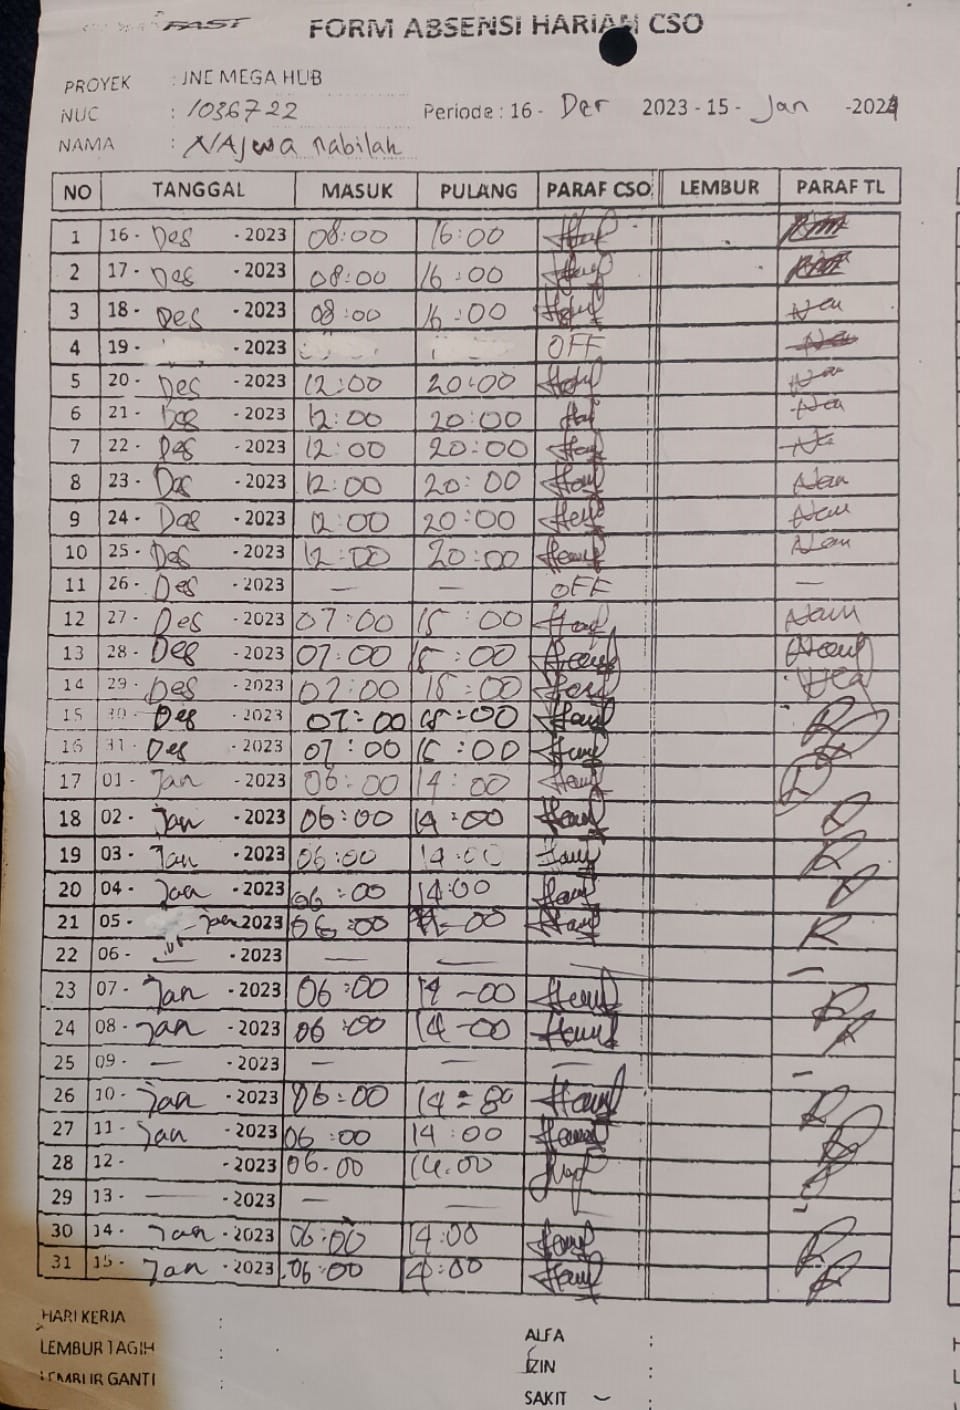 FAST
FORM ABSENSI HARIAN CSO
PROYEK : JNE MEGA HUB
NUC : 1036722 Periode : 16 - Der 2023 - 15 - Jan -2024
NAMA : NAjwa nabilah
NO TANGGAL MASUK PULANG PARAF CSO LEMBUR PARAF TL
1 16 - Des - 2023 08:00 16:00
2 17 - Des - 2023 08:00 16:00
3 18 - Des - 2023 08:00 16:00
4 19 - - 2023 OFF
5 20 - Des - 2023 12:00 20:00
6 21 - Des - 2023 12:00 20:00
7 22 - Des - 2023 12:00 20:00
8 23 - Des - 2023 12:00 20:00
9 24 - Des - 2023 12:00 20:00
10 25 - Des - 2023 12:00 20:00
11 26 - Des - 2023 — — OFF —
12 27 - Des - 2023 07:00 15:00
13 28 - Des - 2023 07:00 15:00
14 29 - Des - 2023 07:00 15:00
15 30 - Des - 2023 07:00 15:00
16 31 - Des - 2023 07:00 15:00
17 01 - Jan - 2023 06:00 14:00
18 02 - Jan - 2023 06:00 14:00
19 03 - Jan - 2023 06:00 14:00
20 04 - Jan - 2023 06:00 14:00
21 05 - Jan 2023 06:00 14-00
22 06 - — - 2023 — — — —
23 07 - Jan - 2023 06:00 14-00
24 08 - Jan - 2023 06:00 14-00
25 09 - — - 2023 — — — —
26 10 - Jan - 2023 06:00 14=00
27 11 - Jan - 2023 06:00 14:00
28 12 - - 2023 06.00 14.00
29 13 - — - 2023 — — —
30 14 - Jan - 2023 06:00 14:00
31 15 - Jan - 2023 06:00 14:00
HARI KERJA : ALFA :
LEMBUR TAGIH : IZIN :
LEMBUR GANTI : SAKIT :